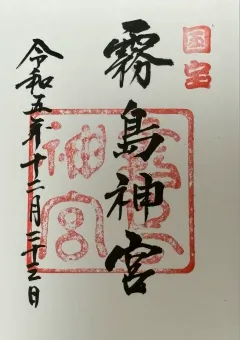 国宝
霧島神宮
令和五年十二月二十三日
霧島神宮